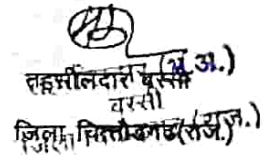 तहसीलदार बस्सी (भू.अ.)
बस्सी
जिला चित्तौड़गढ़ (राज.)